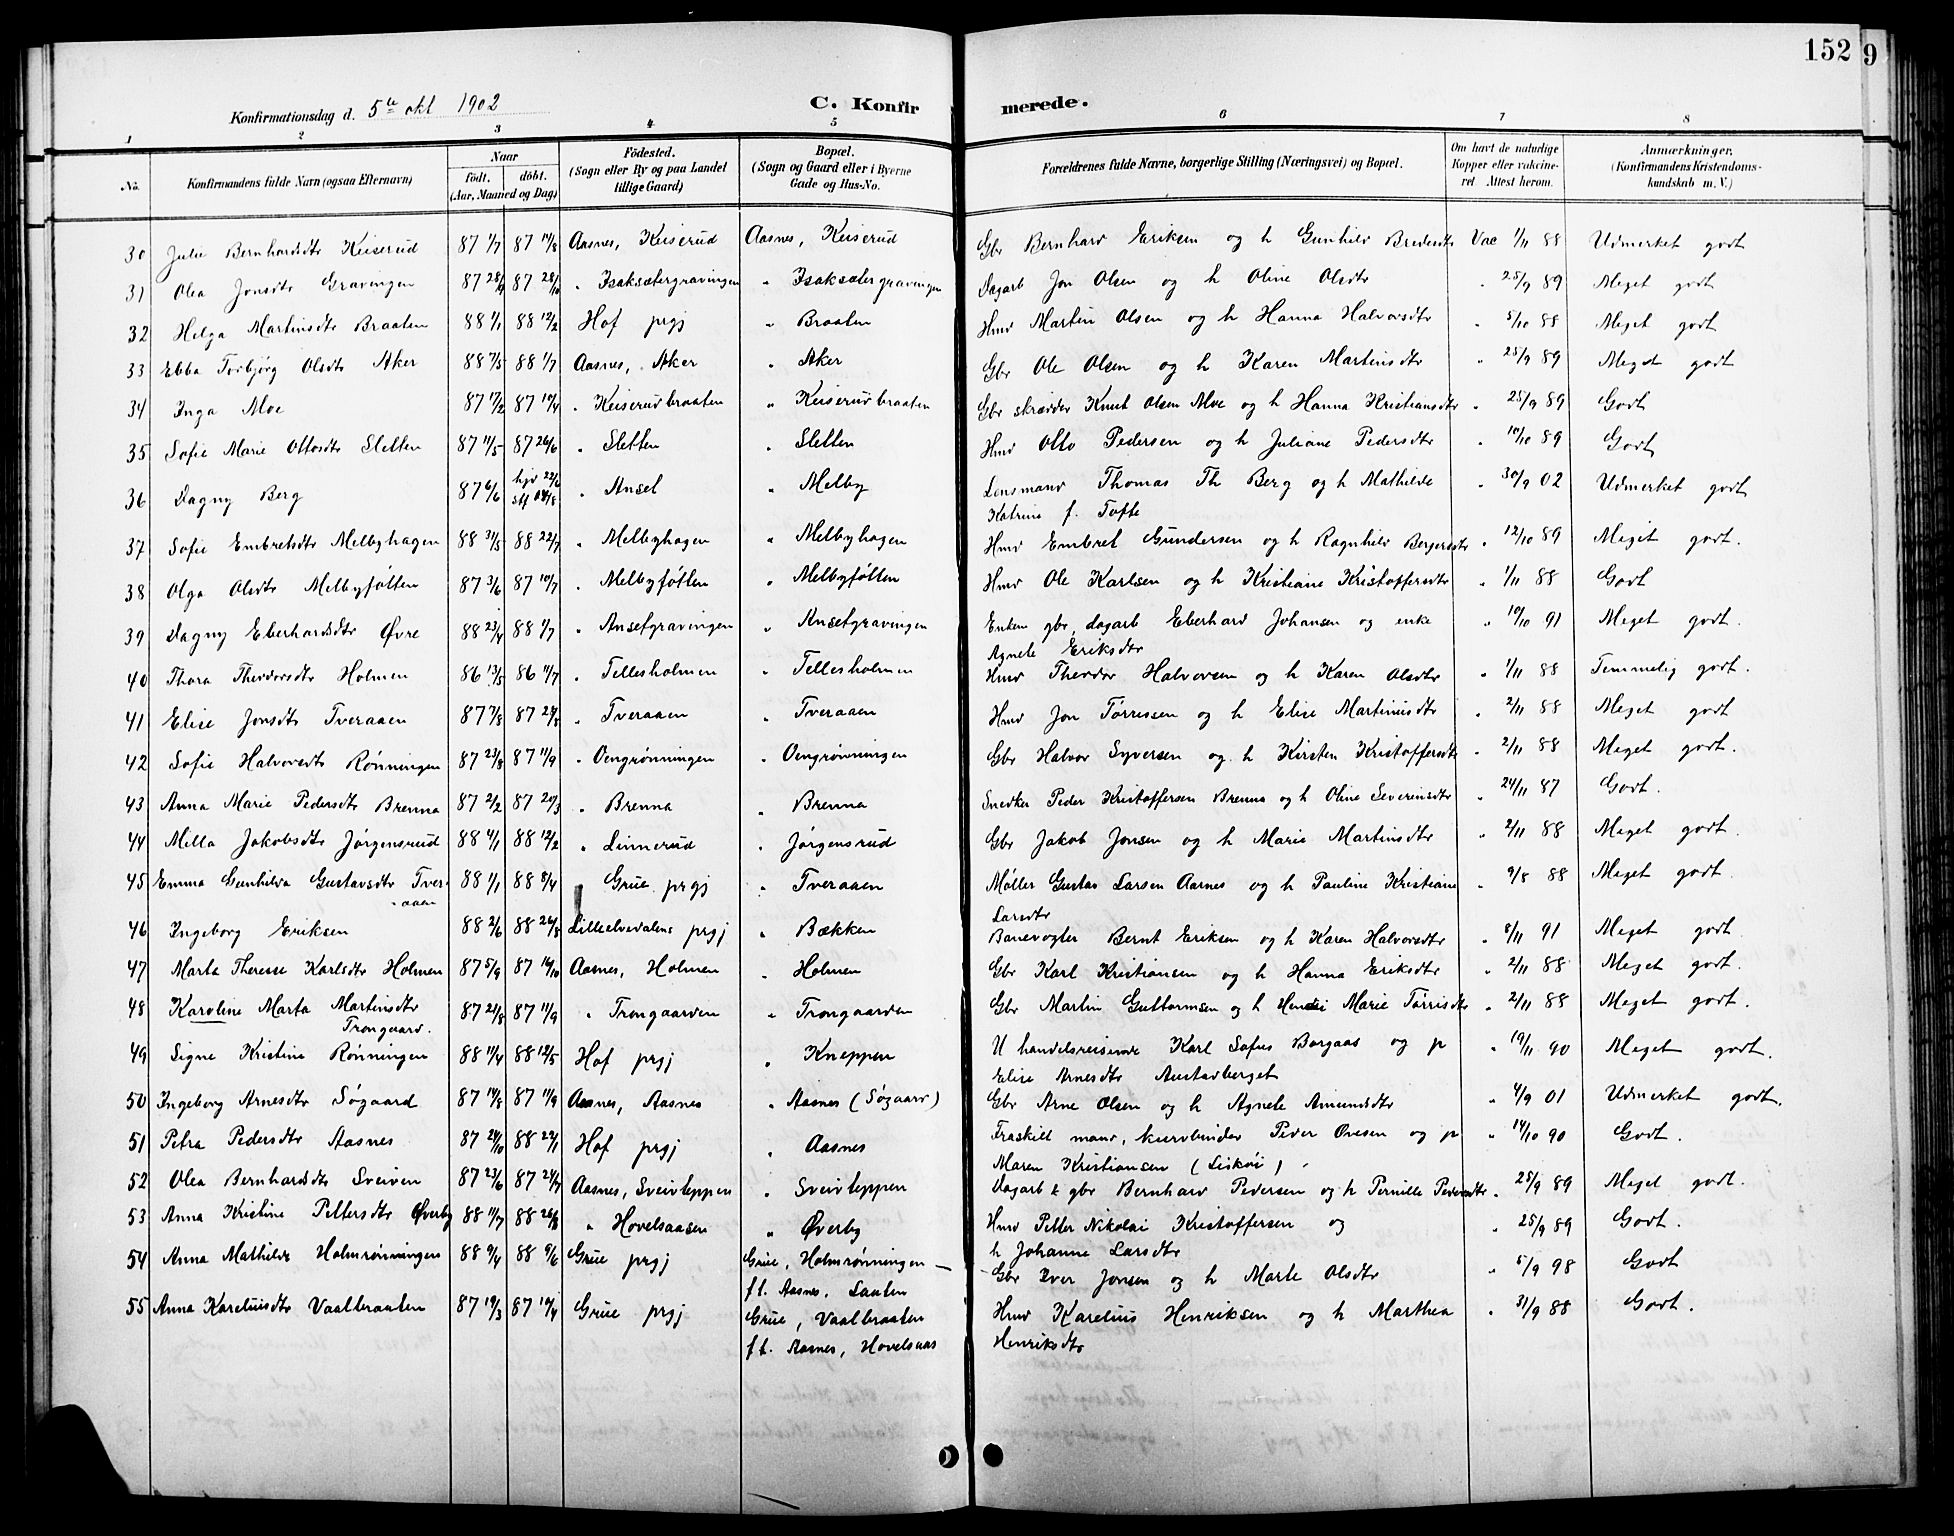 152 9
Konfirmationsdag d. 5te okt 1902 C. Konfirmerede.
1 2 3 4 5 6 7 8
No. Konfirmandens fulde Navn (ogsaa Efternavn) Naar født. døbt. (Aar, Maaned og Dag) Fødested. (Sogn eller By og paa Landet tillige Gaard) Bopæl. (Sogn og Gaard eller i Byerne Gade og Hus-No. Forældrenes fulde Navne, borgerlige Stilling (Næringsvei) og Bopæl. Om havt de naturlige Kopper eller vakcineret Attest herom. Anmærkninger, (Konfirmandens Kristendomskundskab m. V.)
30 Julie Bernhardsdtr Keiserud 87 1/7 87 14/8 Aasnes, Keiserud Aasnes, Keiserud Gbr Bernhard Eriksen og h Gunhild Bredesdtr Vac 1/11 88 Udmerket godt
31 Olea Jonsdtr Gravingen 87 28/9 87 28/10 " Isaksætergravingen " Isaksætergravingen Dagarb Jon Olsen og h Oline Olsdtr " 25/9 89 Meget godt
32 Helga Martinsdtr Braaten 88 1/1 88 12/2 Hof prgj " Braaten Hmd Martin Olsen og h Hanna Halvorsdtr " 5/10 88 Meget godt
33 Ebba Torbjørg Olsdtr Aker 88 7/5 88 1/7 Aasnes, Aker " Aker Gbr Ole Olsen og h Karen Martinsdtr " 25/9 89 Meget godt
34 Inga Moe 87 17/2 87 10/4 " Keiserudbraaten " Keiserudbraaten Gbr skrædder Knut Olsen Moe og h Hanna Kristiansdtr " 25/9 89 Godt
35 Sofie Marie Ottosdtr Sletten 87 11/5 87 26/6 " Sletten " Sletten Hmd Otto Pedersen og h Juliane Pedersdtr " 10/10 89 Godt
36 Dagny Berg 87 6/6 hjd 22/6 stf 14/8 " Ansel " Melby Lensmand Thomas Th Berg og h Mathilde " 30/9 02 Udmerket godt
Katrine f. Tofte
37 Sofie Embretsdtr Melbyhagen 88 31/5 88 22/7 " Melbyhagen " Melbyhagen Hmd Embret Gundersen og h Ragnhild Bergersdtr " 12/10 89 Meget godt.
38 Olga Olsdtr Melbyføtten 87 3/6 87 10/7 " Melbyføtten " Melbyføtten Hmd Ole Karlsen og h Kristiane Kristoffersdtr " 1/11 88 Godt
39 Dagny Eberhardsdtr Øvre 88 23/4 88 1/7 " Anselgravingen " Anselgravingen Enken gbr, dagarb Eberhard Johansen og enke " 10/10 91 Meget godt.
Agnete Eriksdtr
40 Thora Theodorsdtr Holmen 86 13/5 86 11/7 " Tellesholmen " Tellesholmen Hmd Theodor Halvorsen og h Karen Olsdtr " 1/11 88 Temmelig godt.
41 Elise Jonsdtr Tveraaen 87 7/8 87 28/8 " Tveraaen " Tveraaen Hmd Jon Tørressen og h Elise Martinusdtr " 2/11 88 Meget godt
42 Sofie Halvorsdtr Rønningen 87 23/8 87 11/9 " Oengrønningen " Oengrønningen Gbr Halvor Syversen og h Kirsten Kristoffersdtr " 2/11 88 Meget godt.
43 Anna Marie Pedersdtr Brenna 87 2/2 87 20/3 " Brenna " Brenna Snedker Peder Kristoffersen Brenna og h Oline Severinsdtr " 24/11 87 Godt.
44 Milla Jakobsdtr Jørgensrud 88 4/1 88 12/2 " Linnerud " Jørgensrud Gbr Jakob Jonsen og h Marie Martinsdtr " 2/11 88 Meget godt.
45 Emma Gunhilda Gustavsdtr Tver- 88 1/1 88 8/4 Grue prgj " Tveraaen Møller Gustav Larsen Aarnes og h Pauline Kristiane " 9/8 88 Meget godt.
-aaen Larsdtr
46 Ingeborg Eriksen 88 2/6 88 26/8 Lilleelvedalens prgj " Bækken Banevogter Bernt Eriksen og h Karen Halvorsdtr " 8/11 91 Meget godt.
47 Marta Therese Karlsdtr Holmen 87 5/9 87 16/10 Aasnes, Holmen " Holmen Gbr Karl Kristiansen og h Hanna Eriksdtr " 2/11 88 Meget godt.
48 Karoline Marta Martinsdtr 87 21/8 87 11/9 " Trongaarden " Trongaarden Gbr Martin Guttormsen og h Marie Tørrisdtr " 2/11 88 Meget godt.
Trongaard.
49 Signe Kristine Rønningen 88 11/4 88 12/5 Hof prgj " Kneppen U handelsreisende Karl Sofus Borgaas og p " 19/11 90 Meget godt.
Elise Arnesdtr Austadberget
50 Ingeborg Arnesdtr Søgaard 87 14/8 87 11/9 Aasnes, Aasnes " Aasnes (Søgaard) Gbr Arne Olsen og h Agnete Amundsdtr " 4/9 01 Udmerket godt.
51 Petra Pedersdtr Aasnes 87 24/10 88 29/1 Hof prgj " Aasnes Fraskilt mand, kurvbinder Peder Ovesen og p " 14/10 90 Godt.
Maren Kristiansen (Liskøi)
52 Olea Bernhardsdtr Sveiven 87 23/6 87 24/7 Aasnes, Sveivteppen " Sveivteppen Dagarb & gbr Bernhard Pedersen og h Pernille Pedersdtr " 25/9 89 Meget godt.
53 Anna Kristine Pettersdtr Øverby 88 11/7 88 26/8 " Hovelsaasen " Øverby Hmd Petter Nikolai Kristoffersen og " 25/9 89 Godt.
h Johanne Larsdtr
54 Anna Mathilde Holmrønningen 88 9/4 88 9/6 Grue prgj Grue, Holmrønningen — Gbr Iver Jonsen og h Marte Olsdtr " 5/9 98 Godt
f.t. Aasnes, Laaten
55 Anna Kareliusdtr Vaalbraaten 87 19/3 87 10/4 Grue prgj Grue, Vaalbraaten Hmd Karelius Henriksen og h Marthea " 31/9 88 Godt.
f.t. Aasnes, Hovelsaas Henriksdtr